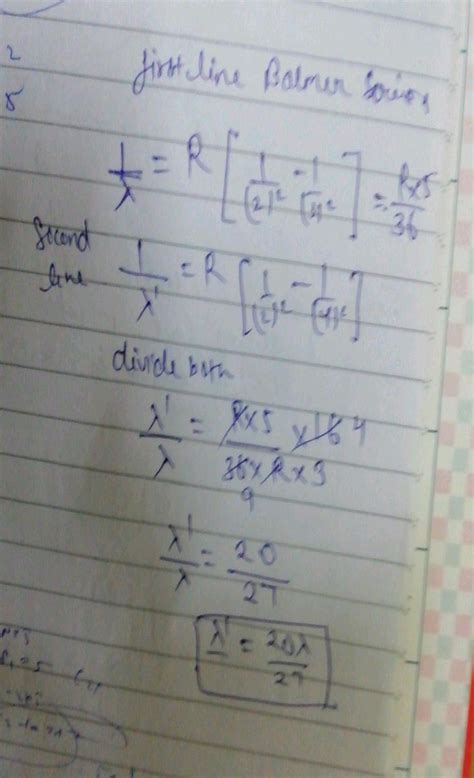 2
5
first line Balmer Series
1/λ = R [ 1/(2)² - 1/(4)² ] = R×5/36
Second line 1/λ' = R [ 1/(2)² - 1/(4)² ]
divide both
λ'/λ = R×5/36×R×3 × 16 4
9
λ'/λ = 20/27
λ' = 20λ/27